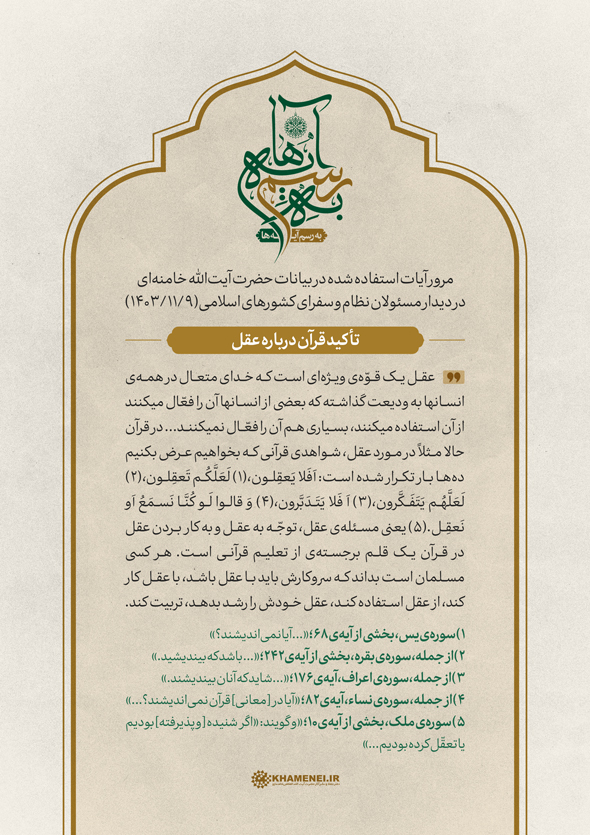 به رسم آیه‌ها
به رسم آیه‌ها
مرور آیات استفاده شده در بیانات حضرت آیت‌الله خامنه‌ای
در دیدار مسئولان نظام و سفرای کشورهای اسلامی (۱۴۰۳/۱۱/۹)
تأکید قرآن درباره عقل
عقل یک قوّه‌ی ویژه‌ای است که خدای متعال در همه‌ی
انسانها به ودیعت گذاشته که بعضی از انسانها آن را فعّال میکنند
از آن استفاده میکنند، بسیاری هم آن را فعّال نمیکنند... در قرآن
حالا مثلاً در مورد عقل، شواهدی قرآنی که بخواهیم عرض بکنیم
ده‌ها بار تکرار شده است: اَفَلا یَعقِلون، (۱) لَعَلَّکُم تَعقِلون، (۲)
لَعَلَّهُم یَتَفَکَّرون، (۳) اَ فَلا یَتَدَبَّرون، (۴) وَ قالوا لَو کُنّا نَسمَعُ اَو
نَعقِل. (۵) یعنی مسئله‌ی عقل، توجّه به عقل و به کار بردن عقل
در قرآن یک قلم برجسته‌ی از تعلیم قرآنی است. هر کسی
مسلمان است بداند که سروکارش باید با عقل باشد، با عقل کار
کند، از عقل استفاده کند، عقل خودش را رشد بدهد، تربیت کند.
۱) سوره‌ی یس، بخشی از آیه‌ی ۶۸؛ «...آیا نمی‌اندیشند؟»
۲) از جمله، سوره‌ی بقره، بخشی از آیه‌ی ۲۴۲؛ «...باشد که بیندیشید.»
۳) از جمله، سوره‌ی اعراف، آیه‌ی ۱۷۶؛ «...شاید که آنان بیندیشند.»
۴) از جمله، سوره‌ی نساء، آیه‌ی ۸۲؛ «آیا در [معانی] قرآن نمی‌اندیشند؟...»
۵) سوره‌ی ملک، بخشی از آیه‌ی ۱۰؛ «و گویند: «اگر شنیده [و پذیرفته] بودیم
یا تعقّل کرده بودیم...»
KHAMENEI.IR